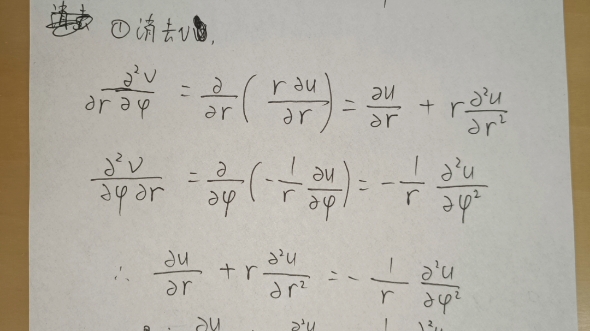 ① 消去v,
∂²v/∂r∂φ = ∂/∂r (r∂u/∂r) = ∂u/∂r + r ∂²u/∂r²
∂²v/∂φ∂r = ∂/∂φ (-1/r ∂u/∂φ) = -1/r ∂²u/∂φ²
∴ ∂u/∂r + r ∂²u/∂r² = -1/r ∂²u/∂φ²